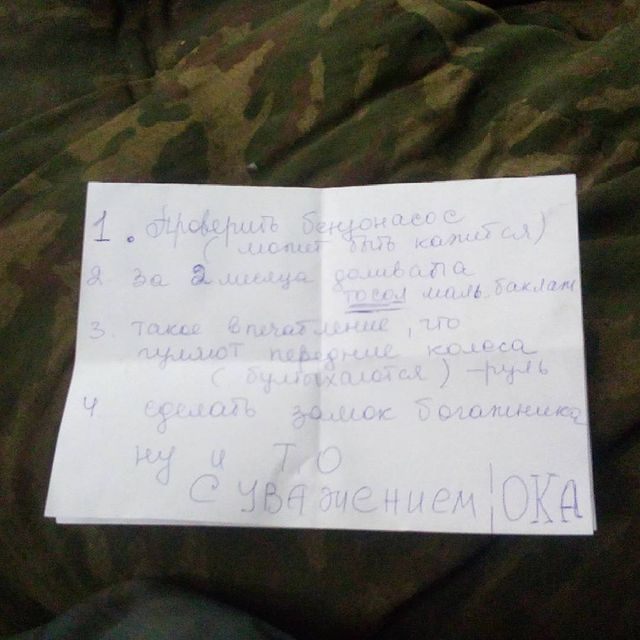 1. Проверить бензонасос
( может быть кажится)
2 за 2 месяца доливала
тосол маль. баклаж
3. такое впечатление, что
гуляют передние колоса
( бултыхаются ) - руль
4 сделать замок богажника
ну и ТО
С УВАЖЕНИЕМ | ОКА